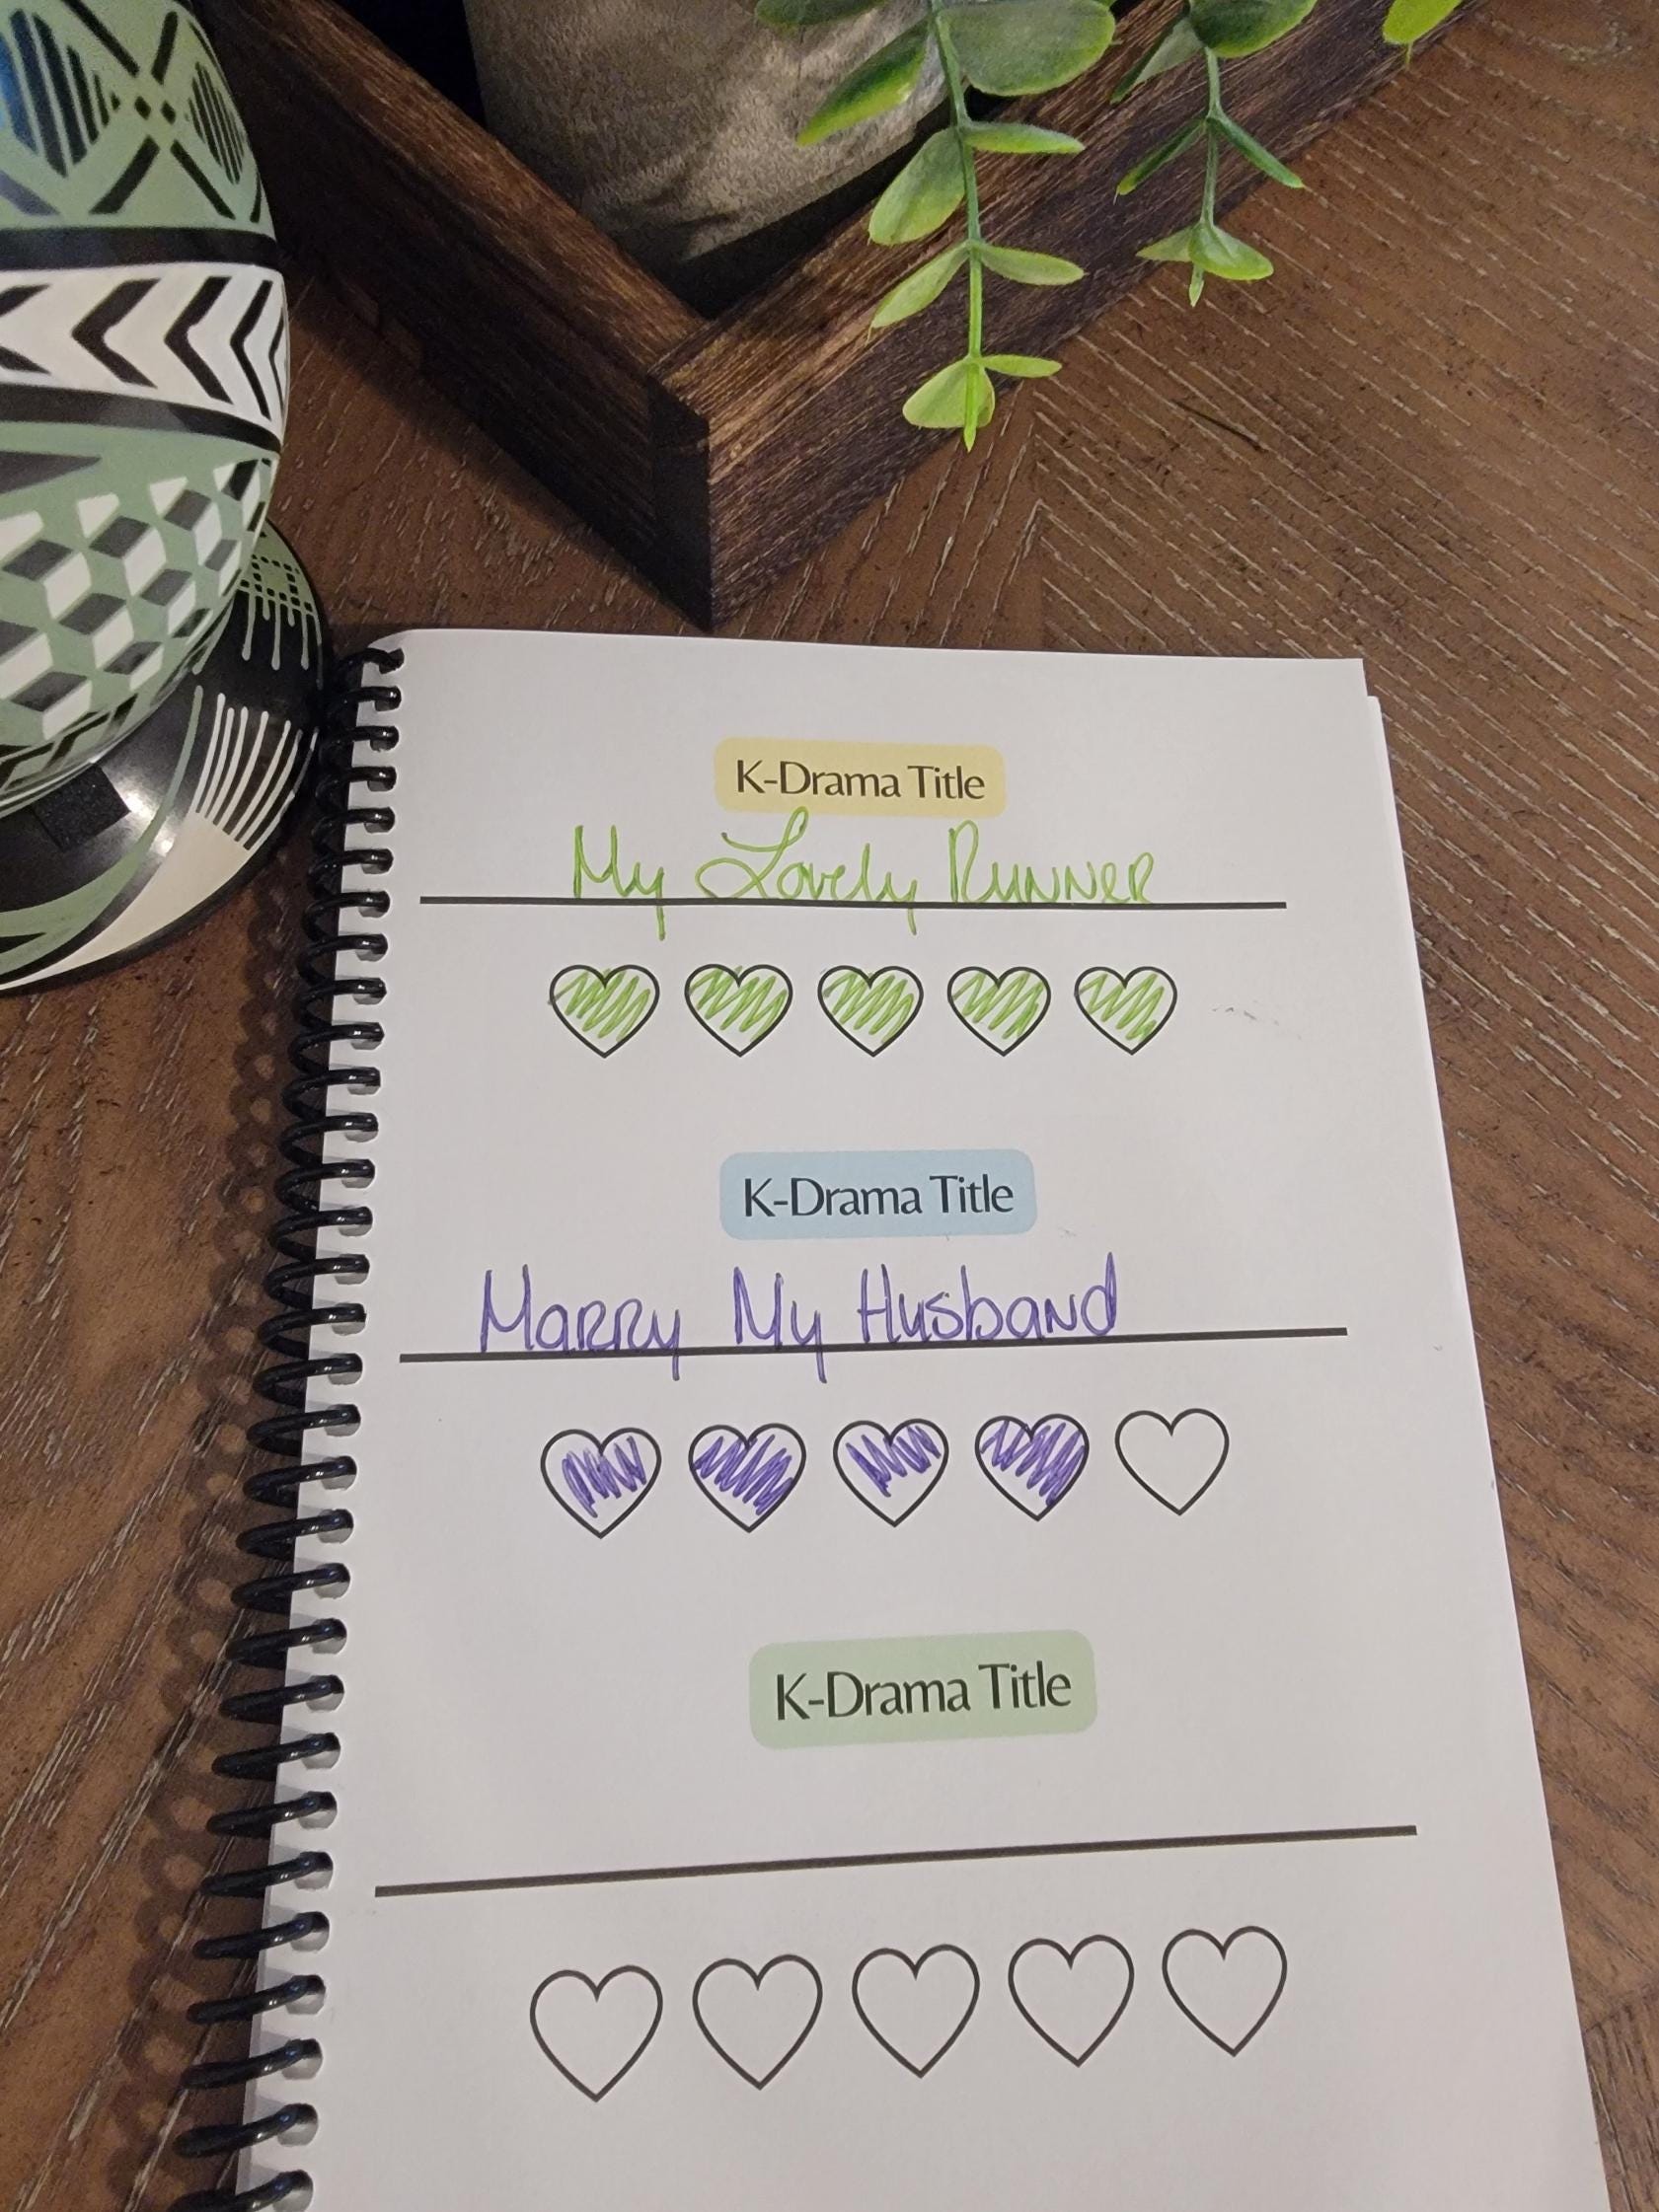 K-Drama Title
My Lovely Runner
K-Drama Title
Marry My Husband
K-Drama Title